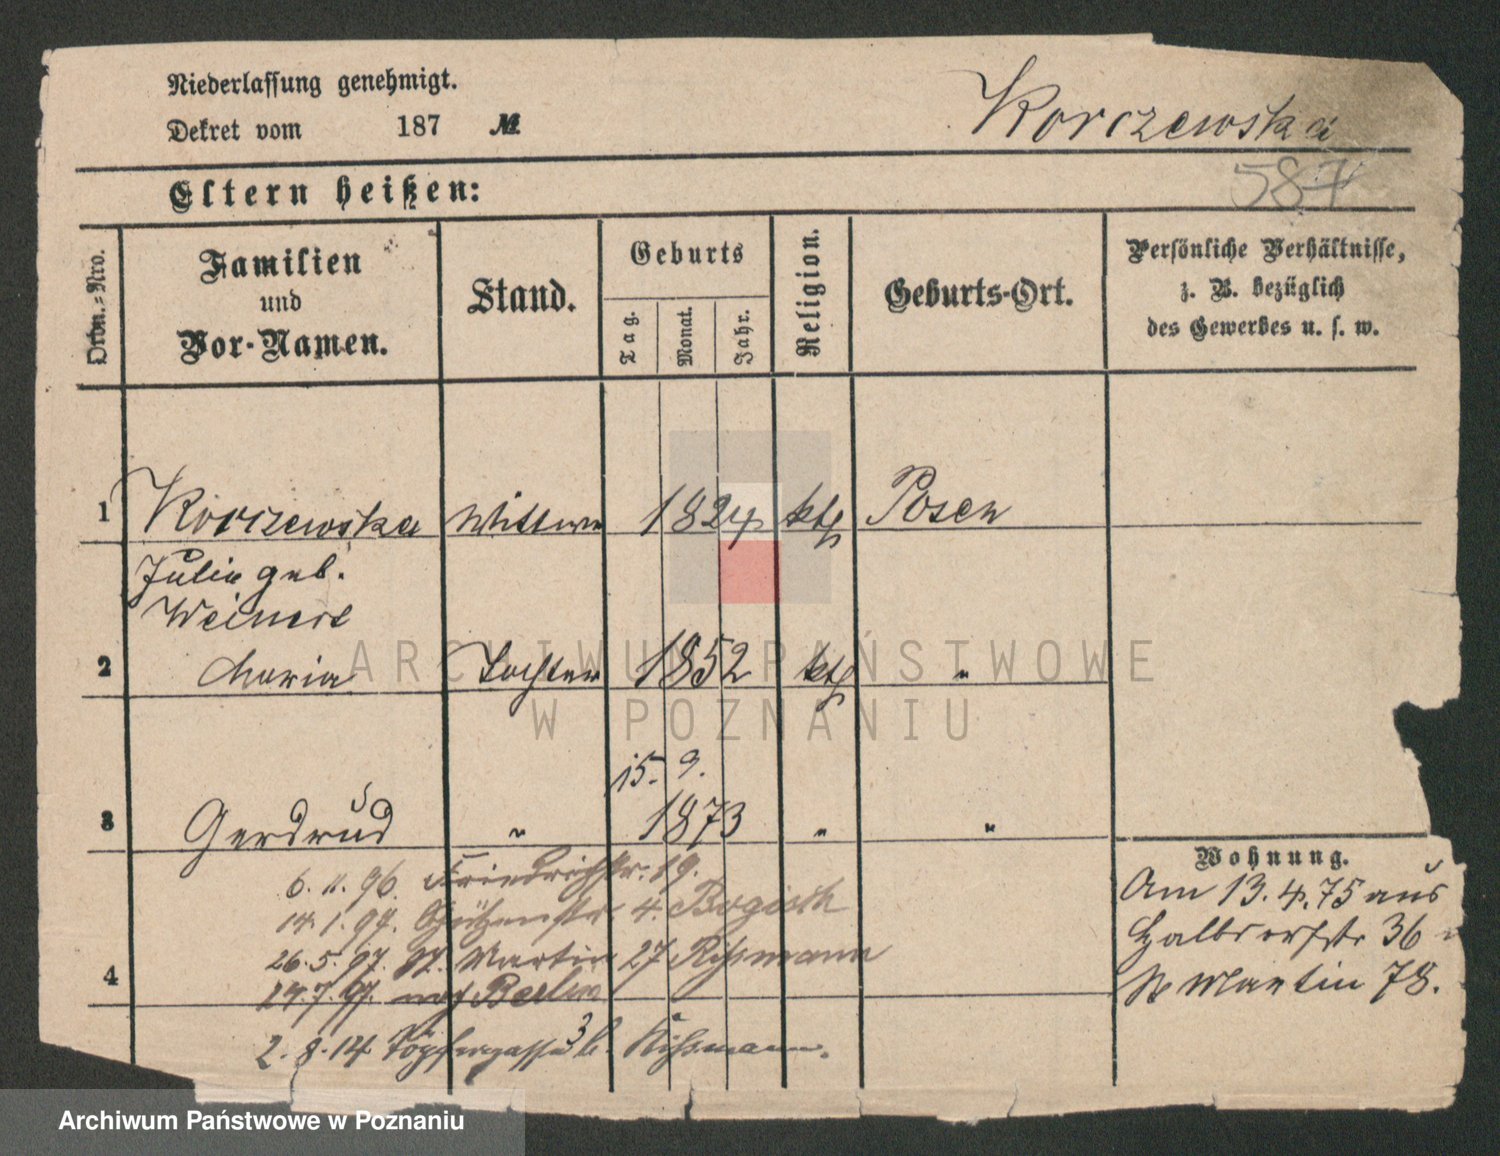 Niederlassung genehmigt.
Dekret vom 187 №
Korczewska
587
Eltern heißen:
Ordn.=Nro.
Familien
und
Vor-Namen.
Stand.
Geburts
Tag.
Monat.
Jahr.
Religion.
Geburts-Ort.
Persönliche Verhältnisse,
z. B. bezüglich
des Gewerbes u. s. w.
1 Korczewska Wittwe 1824 kth Posen
Julie geb.
Weinert
2 Maria Tochter 1852 kth "
15. 9.
3 Gerdrud " 1873 " "
6. 11. 96. Friedrichstr. 19.
14. 1. 97. Schützenstr 4.
26. 5. 97. St. Martin 27 Rissmann
4
14. 7. 97. nach Berlin
2. 8. 14. Töpfergasse 3 b. Rissmann.
Wohnung.
Am 13.4.75 aus
Halbdorfstr 36
St Martin 78.
ARCHIWUM PAŃSTWOWE
W POZNANIU
Archiwum Państwowe w Poznaniu